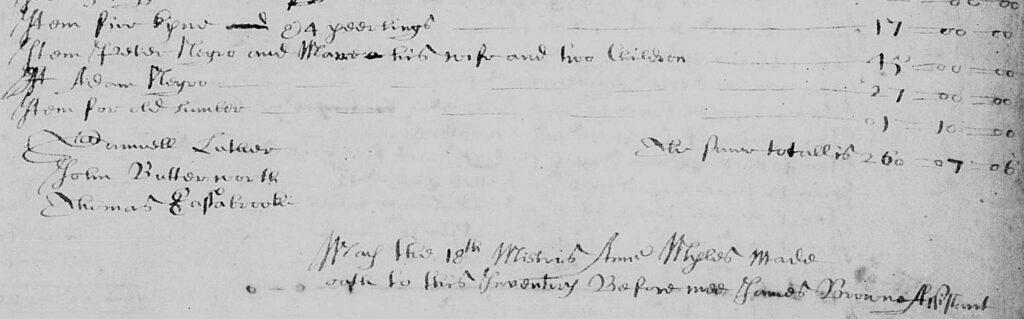 Item five kyne and 94 yeerlings 17 = 00 = 00
Item Peter Negro and Marre his wife and two Children 45 = 00 = 00
It Adam Negro 27 = 00 = 00
Item for old lumber 01 = 10 = 00
Samuell Luther The sume totall is 260 = 07 = 06
John Butterworth
Thomas Eastabrook
May the 18th Mistris Anne Myles made
oath to this Inventory Before mee James Browne Assistant